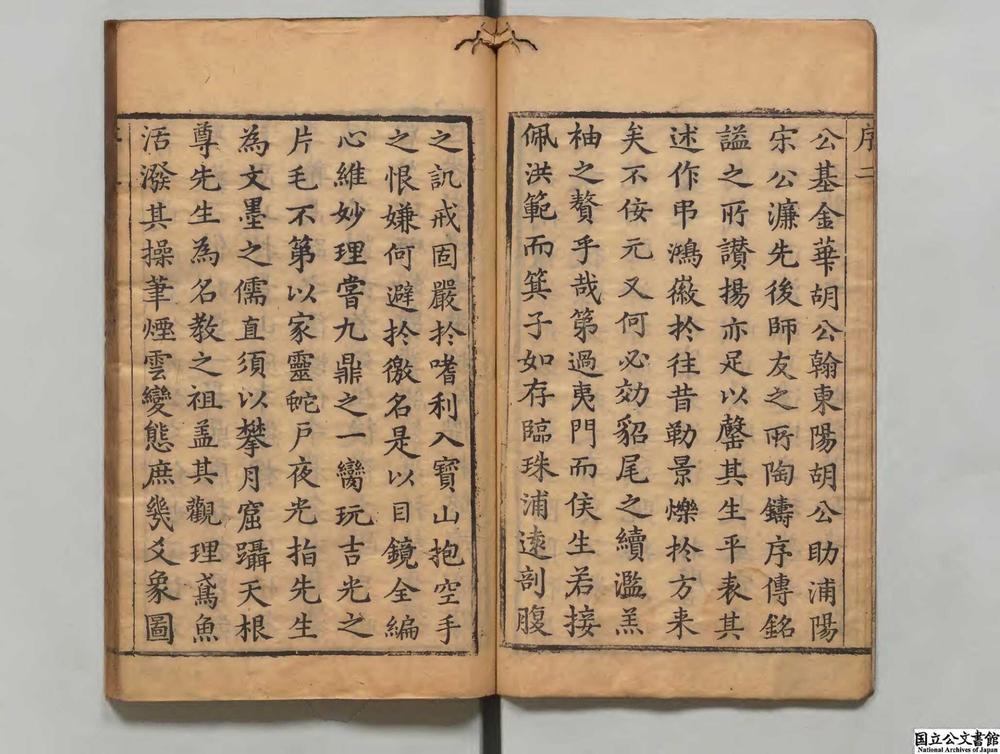 序二
公基金華胡公翰東陽胡公助浦陽
宋公濂先後師友之所陶鑄序傳銘
謚之所讃揚亦足以罄其生平表其
述作弔鴻徽扵往昔勒景爍扵方来
矣不佞元又何必効貂尾之續濫羔
柚之贅乎哉第過夷門而侯生若接
佩洪範而箕子如存臨珠浦遠剖腹
之訊戒固嚴扵嗜利入寳山抱空手
之恨嫌何避扵徼名是以目鏡全編
心維妙理嘗九鼎之一臠玩吉光之
片毛不第以家靈蛇戶夜光指先生
為文墨之儒直須以攀月窟躡天根
尊先生為名教之祖盖其觀理鳶魚
活潑其操筆煙雲變態庶幾爻象圖
国立公文書館
National Archives of Japan